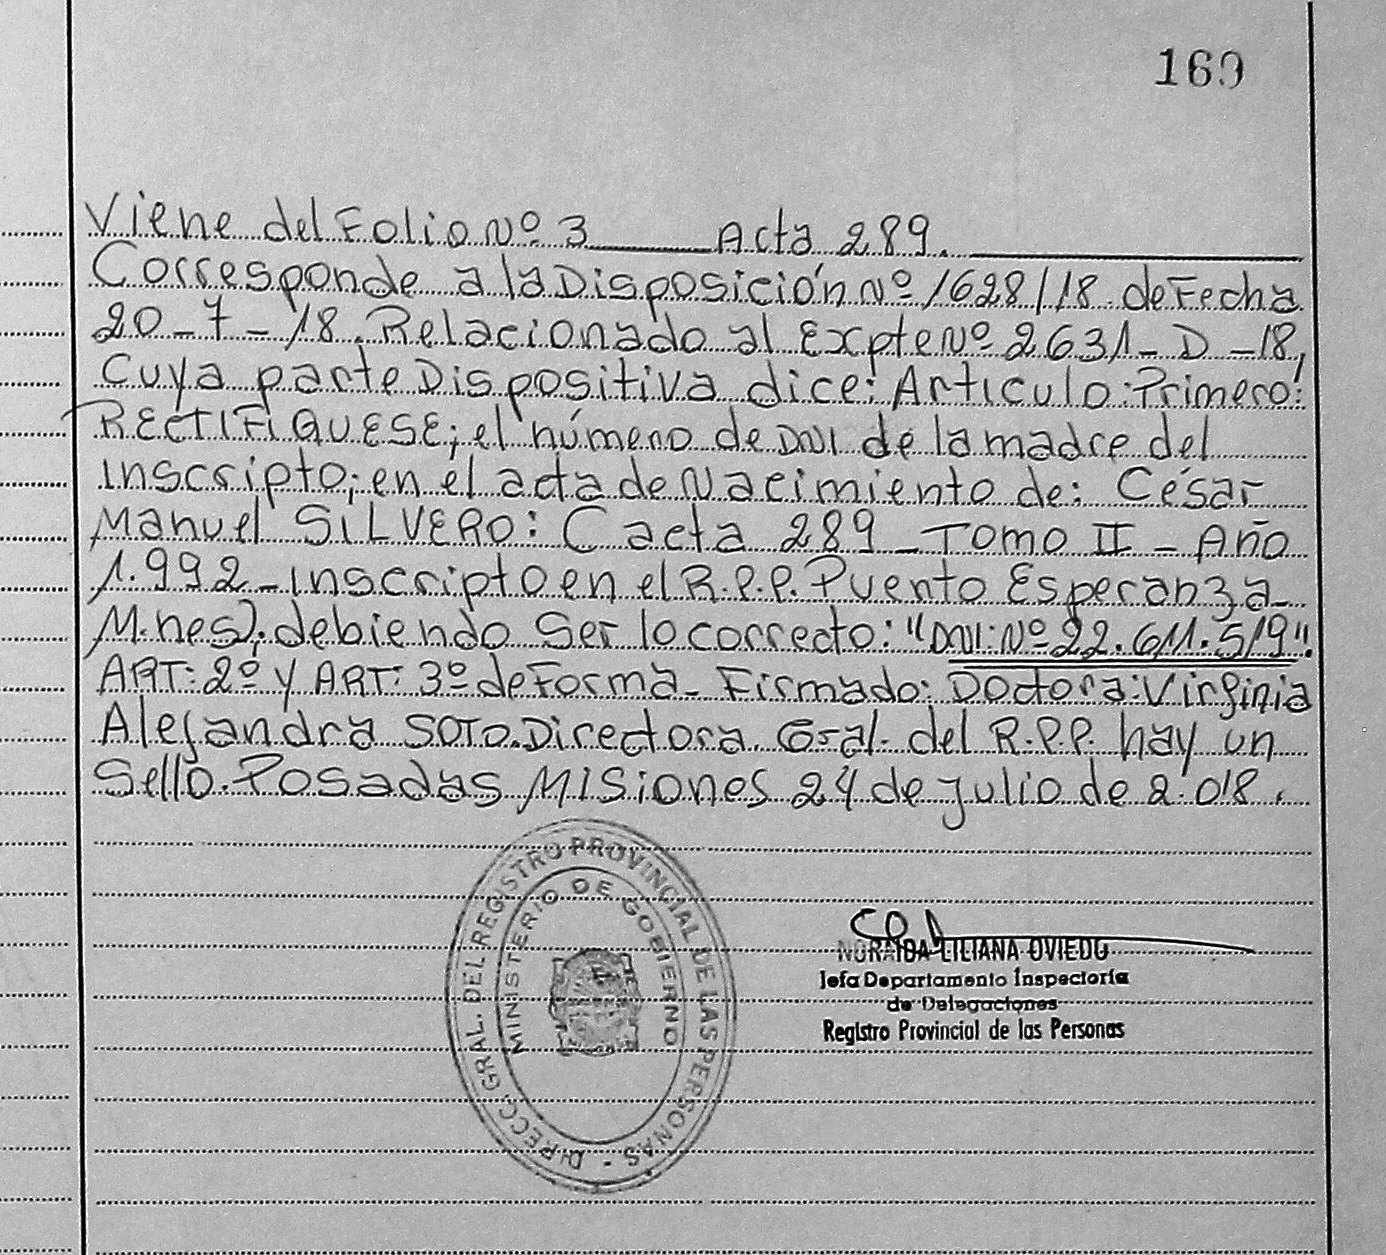 160
Viene del Folio Nº 3 Acta 289.
Corresponde a la Disposición Nº 1628/18 de Fecha
20-7-18. Relacionado al Expte Nº 2631-D-18,
Cuya parte Dispositiva dice: Articulo: Primero:
RECTIFIQUESE; el número de DNI de la madre del
inscripto; en el acta de Nacimiento de: César
Manuel SILVERO: (acta 289 - Tomo II - Año
1.992 - inscripto en el R.P.P. Puerto Esperanza
M.nes), debiendo ser lo correcto: "DNI: Nº 22.611.519".
ART: 2º y ART: 3º de Forma - Firmado: Doctora: Virginia
Alejandra SOTO. Directora Gral. del R.P.P. hay un
Sello. Posadas Misiones 24 de julio de 2.018.
DIRECC. GRAL. DEL REGISTRO PROVINCIAL DE LAS PERSONAS -
MINISTERIO DE GOBIERNO
NORAIDA LILIANA OVIEDO
Jefa Departamento Inspectoría
de Delegaciones
Registro Provincial de las Personas